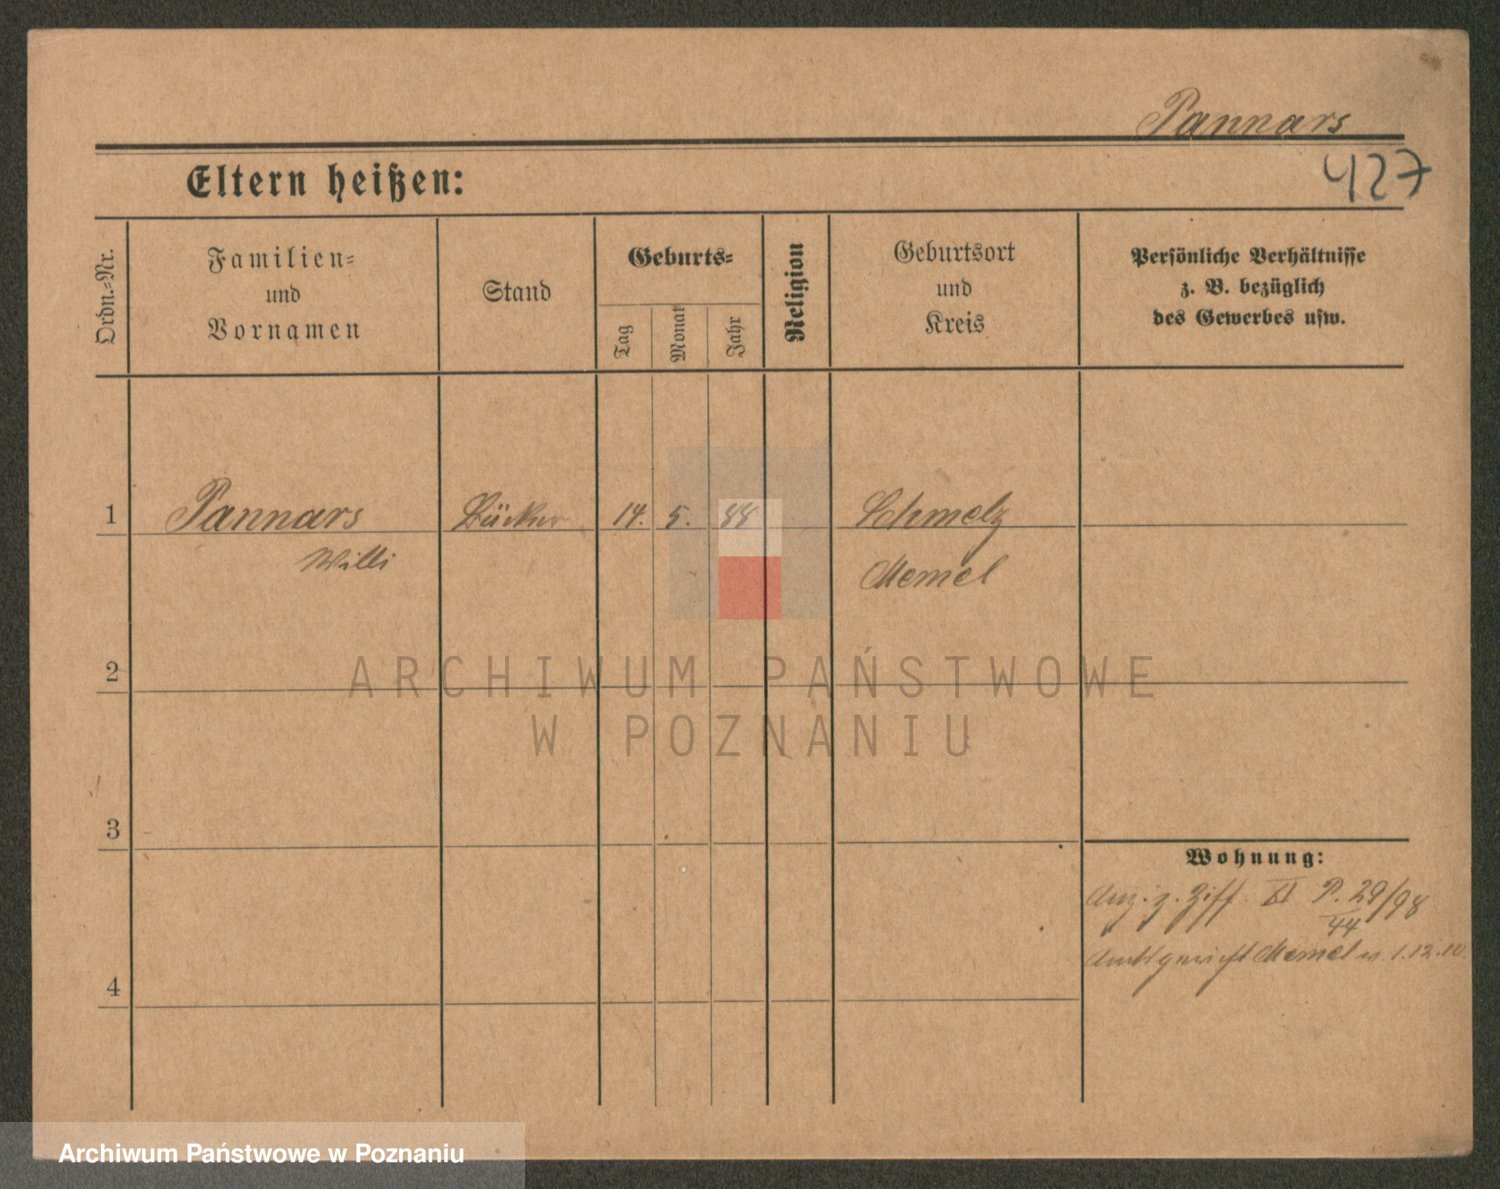 Pannars
427
Eltern heißen:
Ordn.-Nr.
Familien-
und
Vornamen
Stand
Geburts-
Tag
Monat
Jahr
Religion
Geburtsort
und
Kreis
Persönliche Verhältnisse
z. B. bezüglich
des Gewerbes usw.
1
Pannars
Willi
14.
5.
88
Schmelz
Memel
2
ARCHIWUM PAŃSTWOWE
W POZNANIU
3
Wohnung:
Anz. z. Ziff. XI P. 29/98
44
Amtsgericht Memel v. 1.12.10.
4
Archiwum Państwowe w Poznaniu